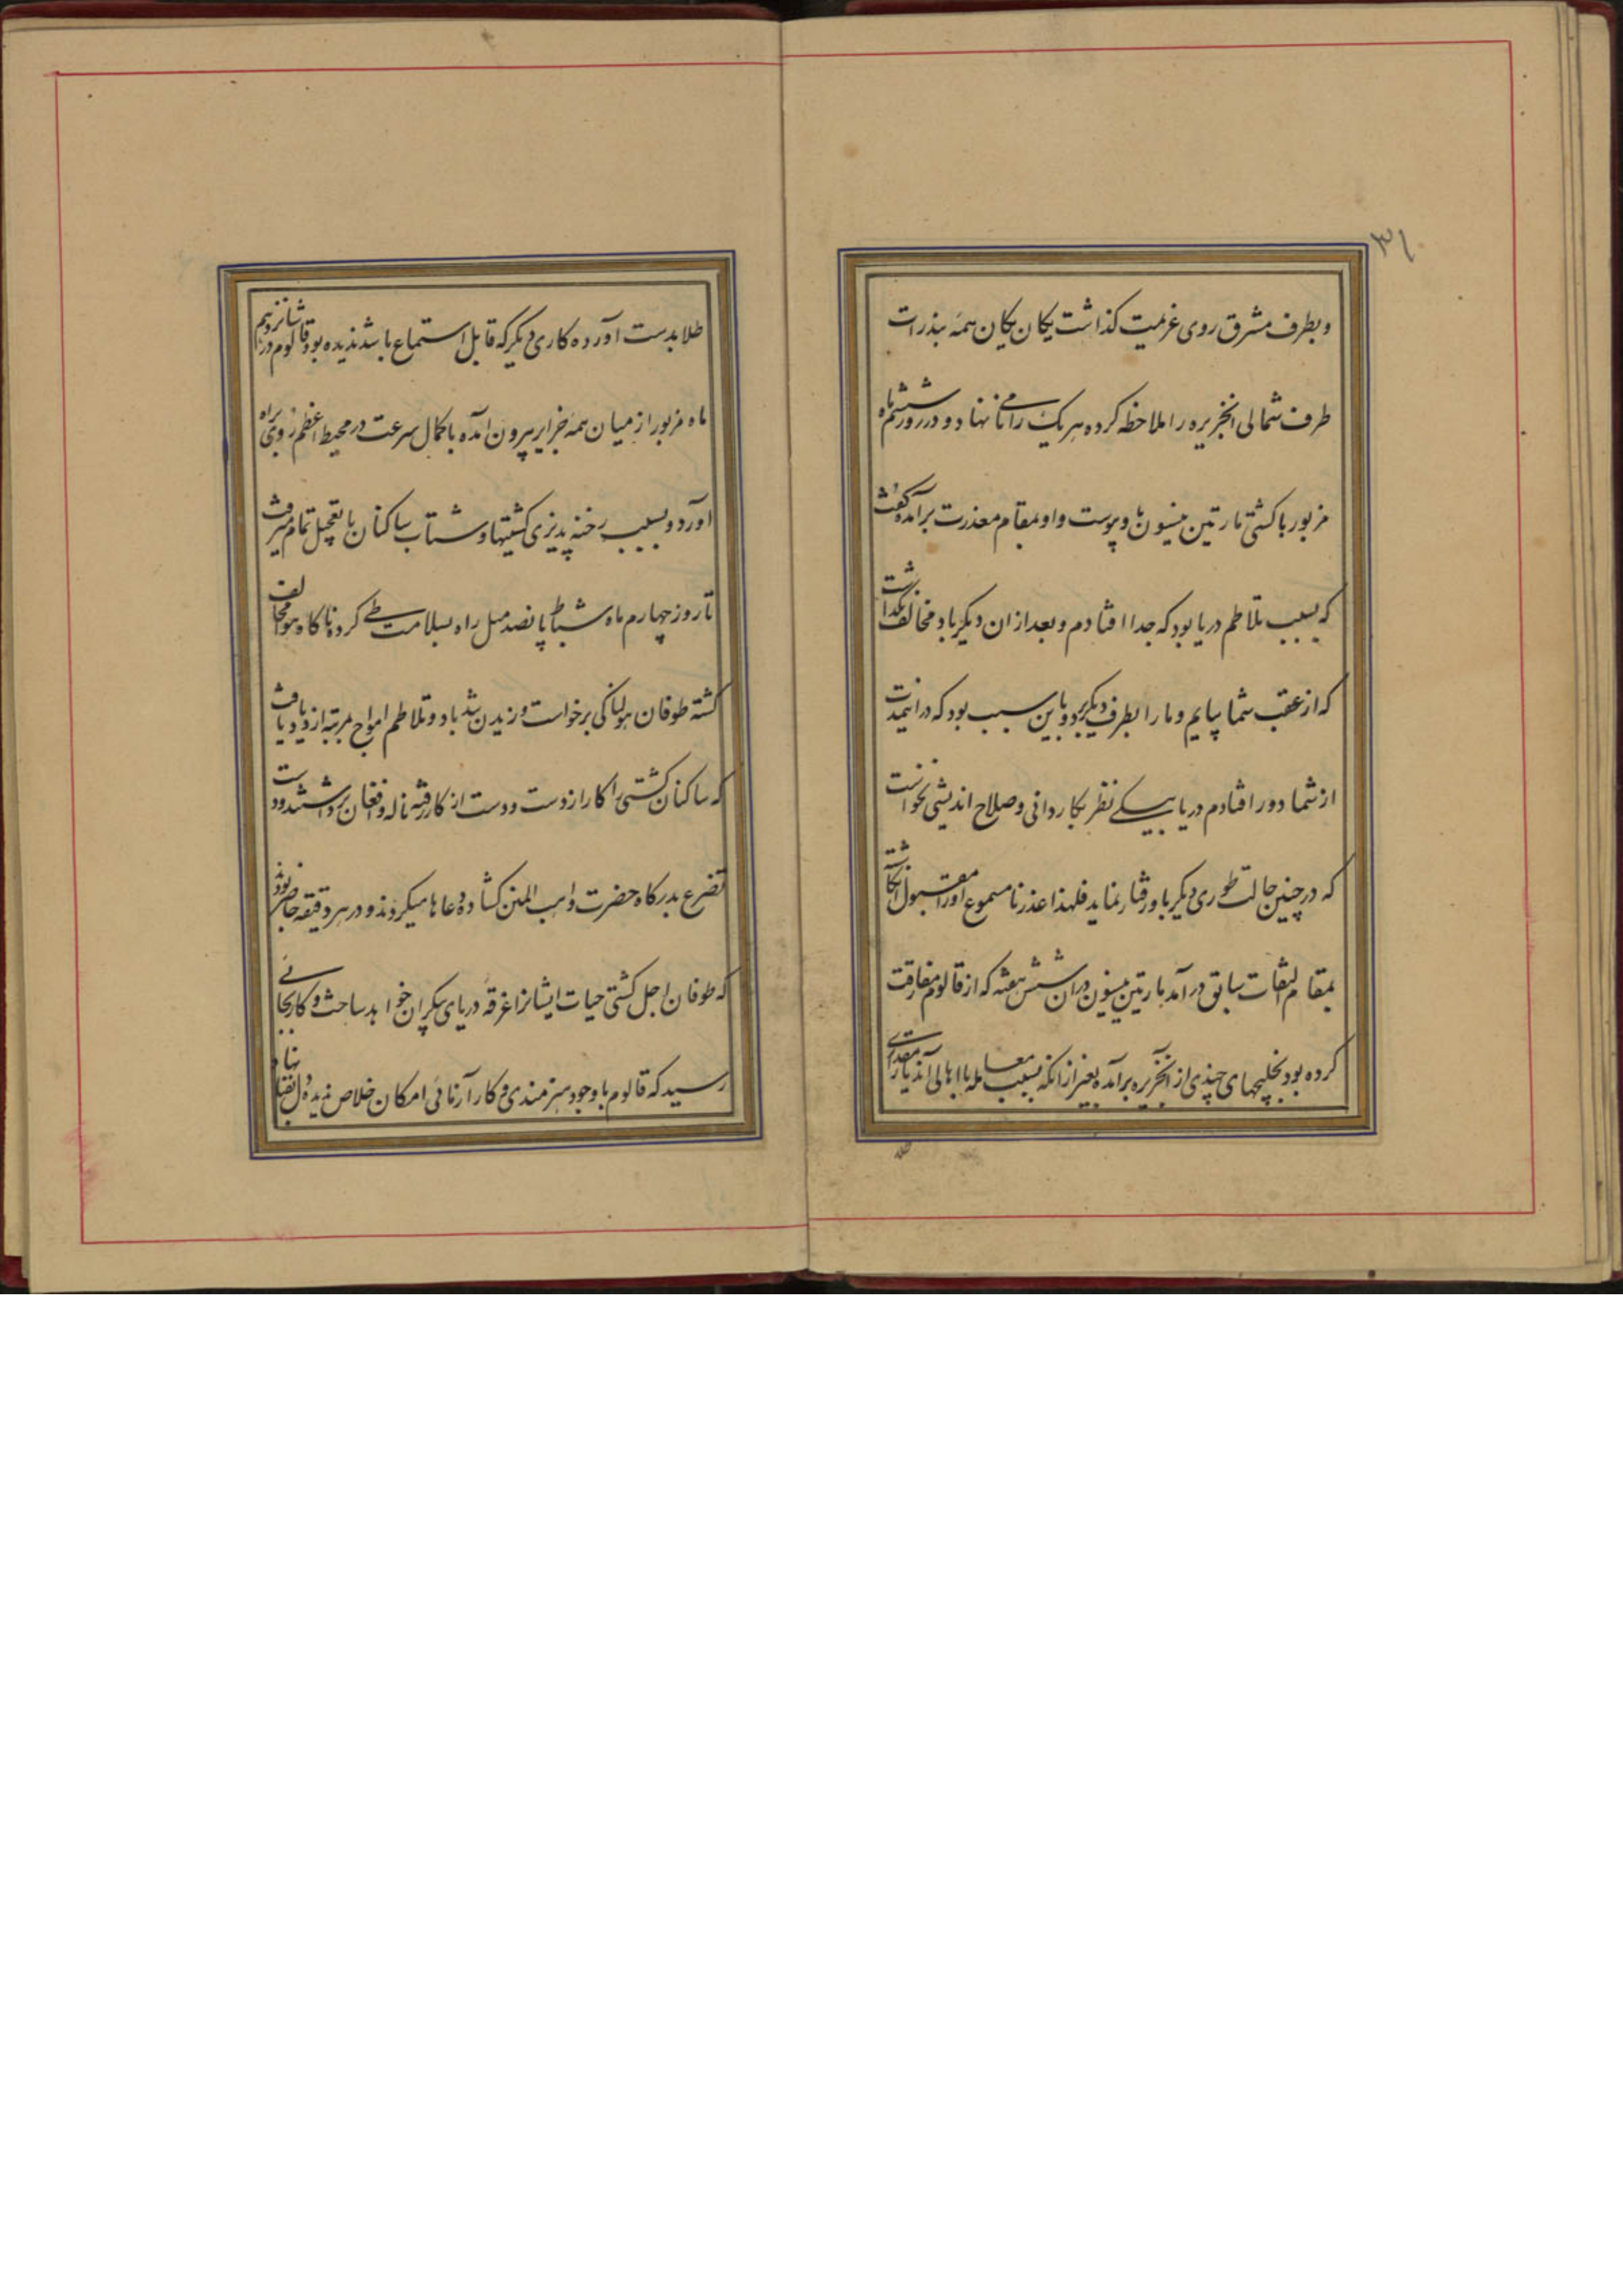 ۳۱
و بطرف مشرق روی عزیمت کذاشت یکان یکان همه بنذرات
طرف شمالی انجزیره را ملاحظه کرده هر یک را نامی نهاد و در روز ششم ماه
مزبور با کشتی مارتین پینسون باو پیوست و او بمقام معذرت برآمده گفت
که بسبب تلاطم دریا بود که جدا افتادم و بعد از ان دیکر باد مخالف نکذاشت
که از عقب شما بیایم و ما را بطرف دیکر برد و باین سبب بود که در اینمدت
از شما دور افتادم دریابیکی نظر بکاردانی و صلاح اندیشی نخواست
که در چنین حالت طوری دیکر باو رفتار نماید فلهذا عذر نامسموع او را مقبول انکاشته
بمقام التفات سابق در آمد مارتین پینسون در ان شش هفته که از قالوم مفارقت
کرده بود بخلیجهای چندی از انجزیره برآمده بغیر از انکه بسبب معامله با اهالی آندیار مقداری
طلا بدست آورده کاری دیکر که قابل استماع باشد ندیده بود و قالوم در شانزدهم
ماه مزبور از میان همه جزایر بیرون آمده با کمال سرعت در محیط اعظم روی براه
آورد و بسبب رخنه پذیری کشتیها و شتاب ساکنان با تعجیل تمام میرفت
تا روز چهارم ماه شباط پانصد میل راه بسلامت طی کرده ناکاه هوا مخالف
کشته طوفان هولناکی برخواست وزیدن باد و تلاطم امواج بمرتبه ازدیاد یافت
که ساکنان کشتی را کار از دست و دست از کار رفته ناله و افغان برداشتند و دست
تضرع بدرکاه حضرت واهب المنن کشاده دعاها میکردند و در هر دقیقه حاضر بودند
که طوفان اجل کشتی حیات ایشانرا غرقه دریای بیکران خواهد ساخت و کار بجائی
رسید که قالوم با وجود هنرمندی و کار آزمائی امکان خلاص ندیده دل بقضا نهاد